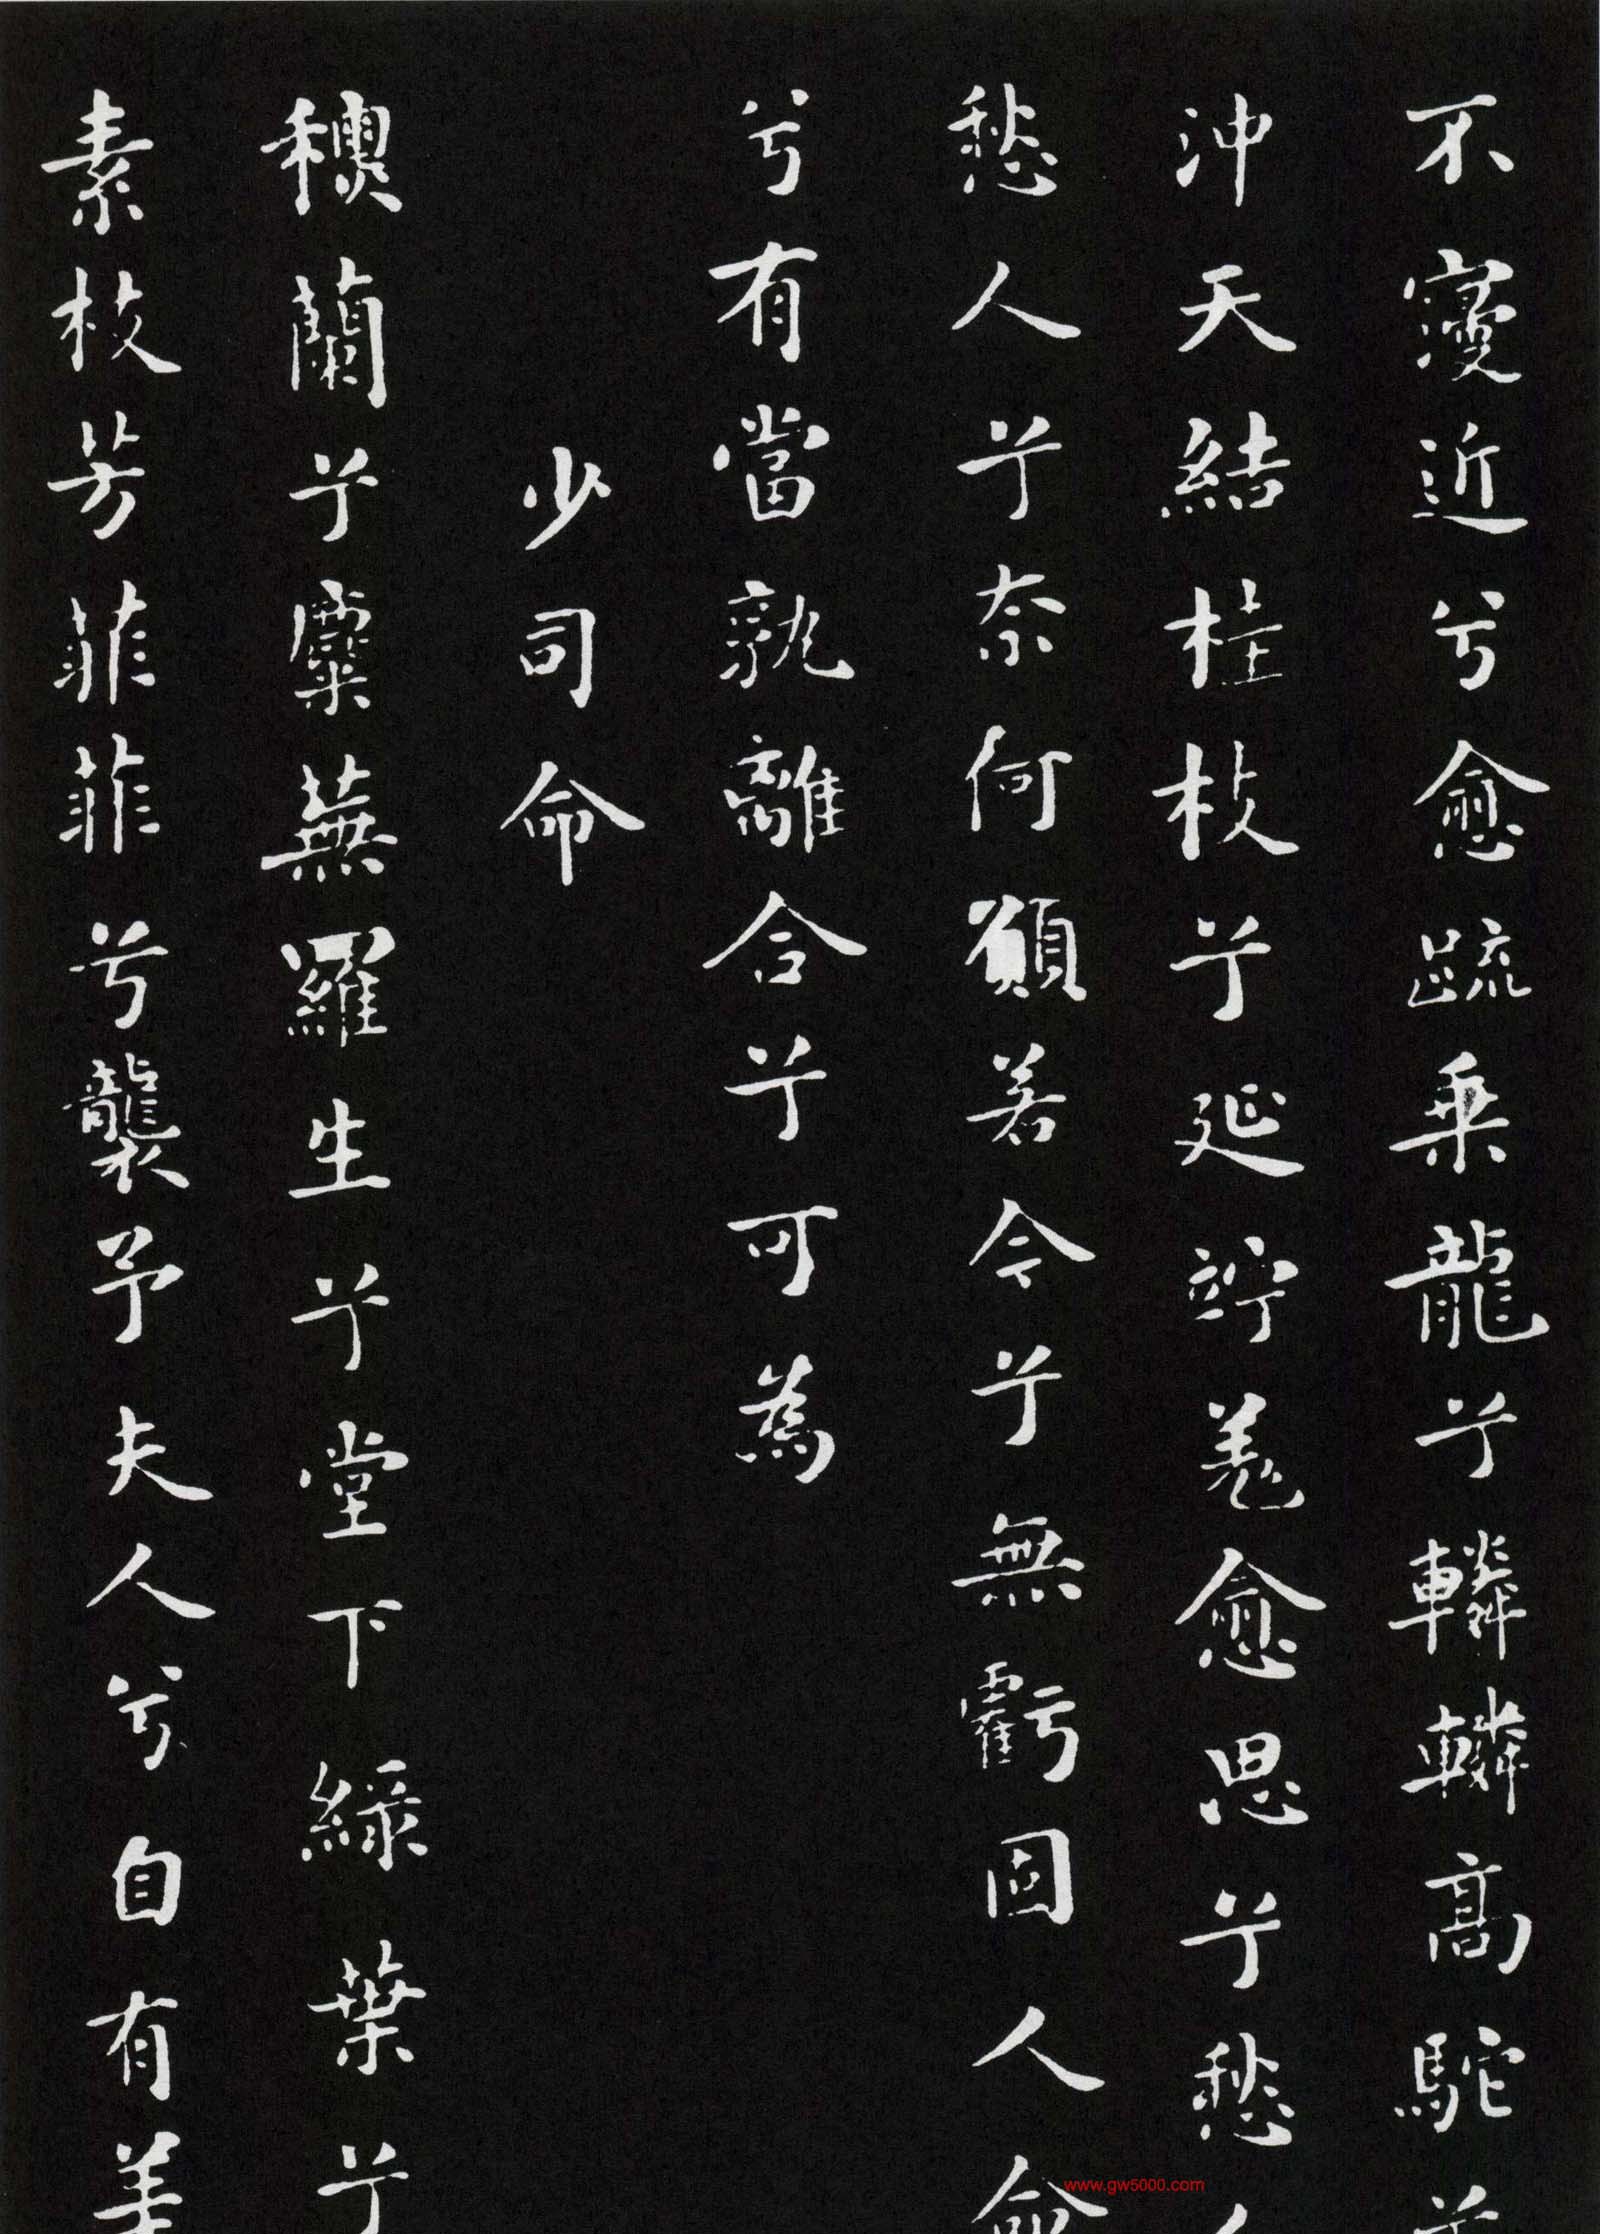 不寖近兮愈疏乘龍兮轔轔高駝兮
沖天結桂枝兮延竚羌愈思兮愁人
愁人兮奈何願若今兮無虧固人命
兮有當孰離合兮可為
少司命
穠蘭兮麋蕪羅生兮堂下綠葉兮
素枝芳菲菲兮襲予夫人兮自有美
www.gw5000.com